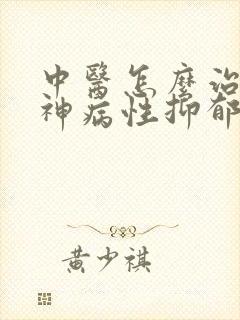 中醫怎麼治
神病性抑郁
黄少祺